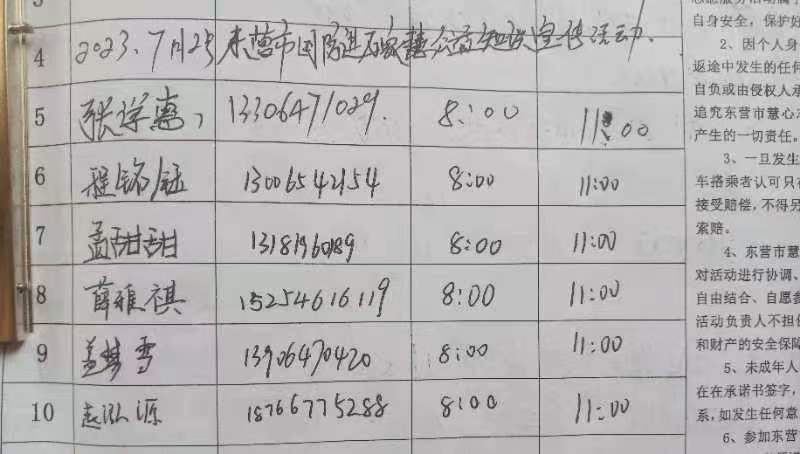 4 2023.7月25 东营市国防进万家慧公益知识宣传活动.
5 张学 13306471029. 8:00 11:00
6 程铭钰 13006542154 8:00 11:00
7 孟甜甜 13181960189 8:00 11:00
8 薛雅祺 15254616119 8:00 11:00
9 盖梦雪 13906470420 8:00 11:00
10 泓源 18766775288 8:00 11:00
自身安全，保护好
2、因个人身
返途中发生的任何
自负或由侵权人承
追究东营市慧心
产生的一切责任。
3、一旦发生
车搭乘者认可只
接受赔偿，不得另
索赔。
4、东营市慧
对活动进行协调、
自由结合、自愿参
活动负责人不担
和财产的安全保障
5、未成年人
在在承诺书签字，
系，如发生任何意
6、参加东营